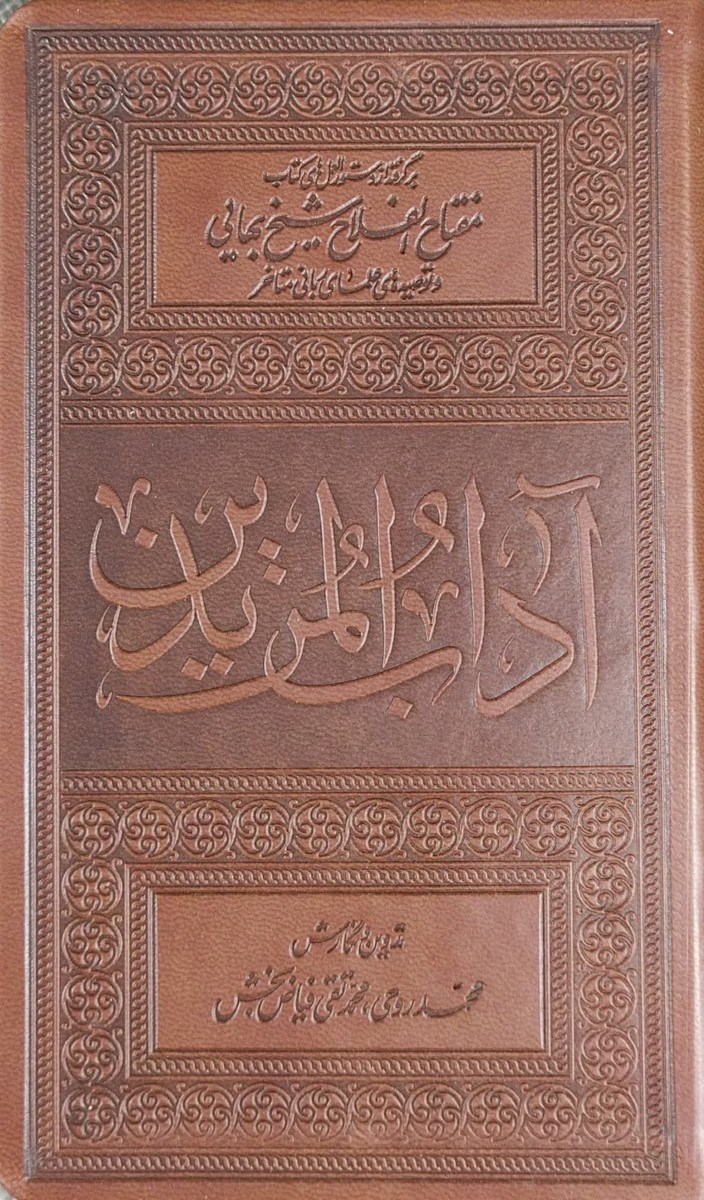 برگرفته از دستورالعمل‌های کتاب
مفتاح الفلاح شیخ بهائی
و توصیه‌های علمای ربانی متأخر
آداب المُریدین
تدوین و نگارش
محمد روحی، محمدتقی فیاض‌بخش